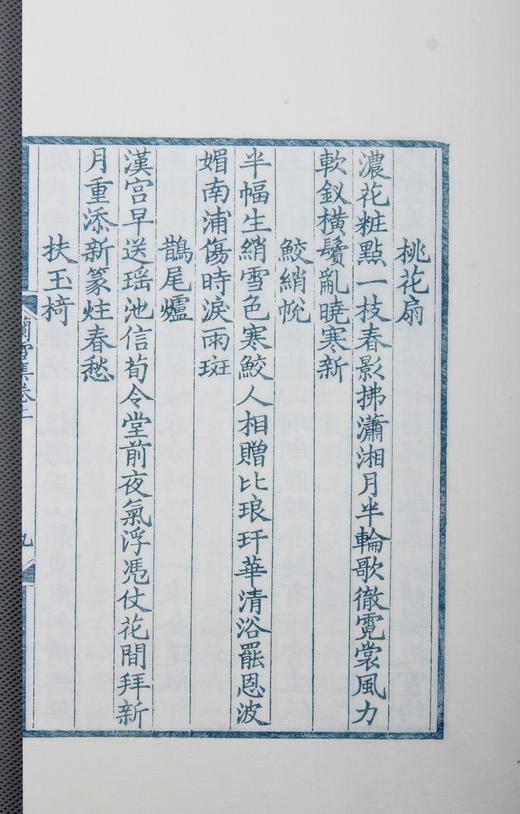 桃花扇
濃花粧點一枝春影拂瀟湘月半輪歌徹霓裳風力
軟釵橫鬢亂曉寒新
鮫綃帨
半幅生綃雪色寒鮫人相贈比琅玕華清浴罷恩波
媚南浦傷時淚雨斑
鵲尾爐
漢宮早送瑶池信荀令堂前夜氣浮憑仗花間拜新
月重添新篆炷春愁
扶玉椅
蘭雪集卷二
九